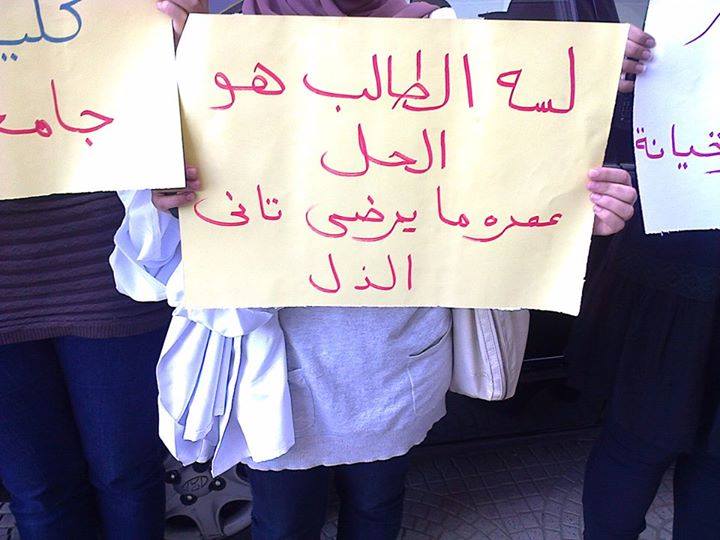 لسه الطالب هو
الحل
عمره ما يرضى تانى
الذل
جامع